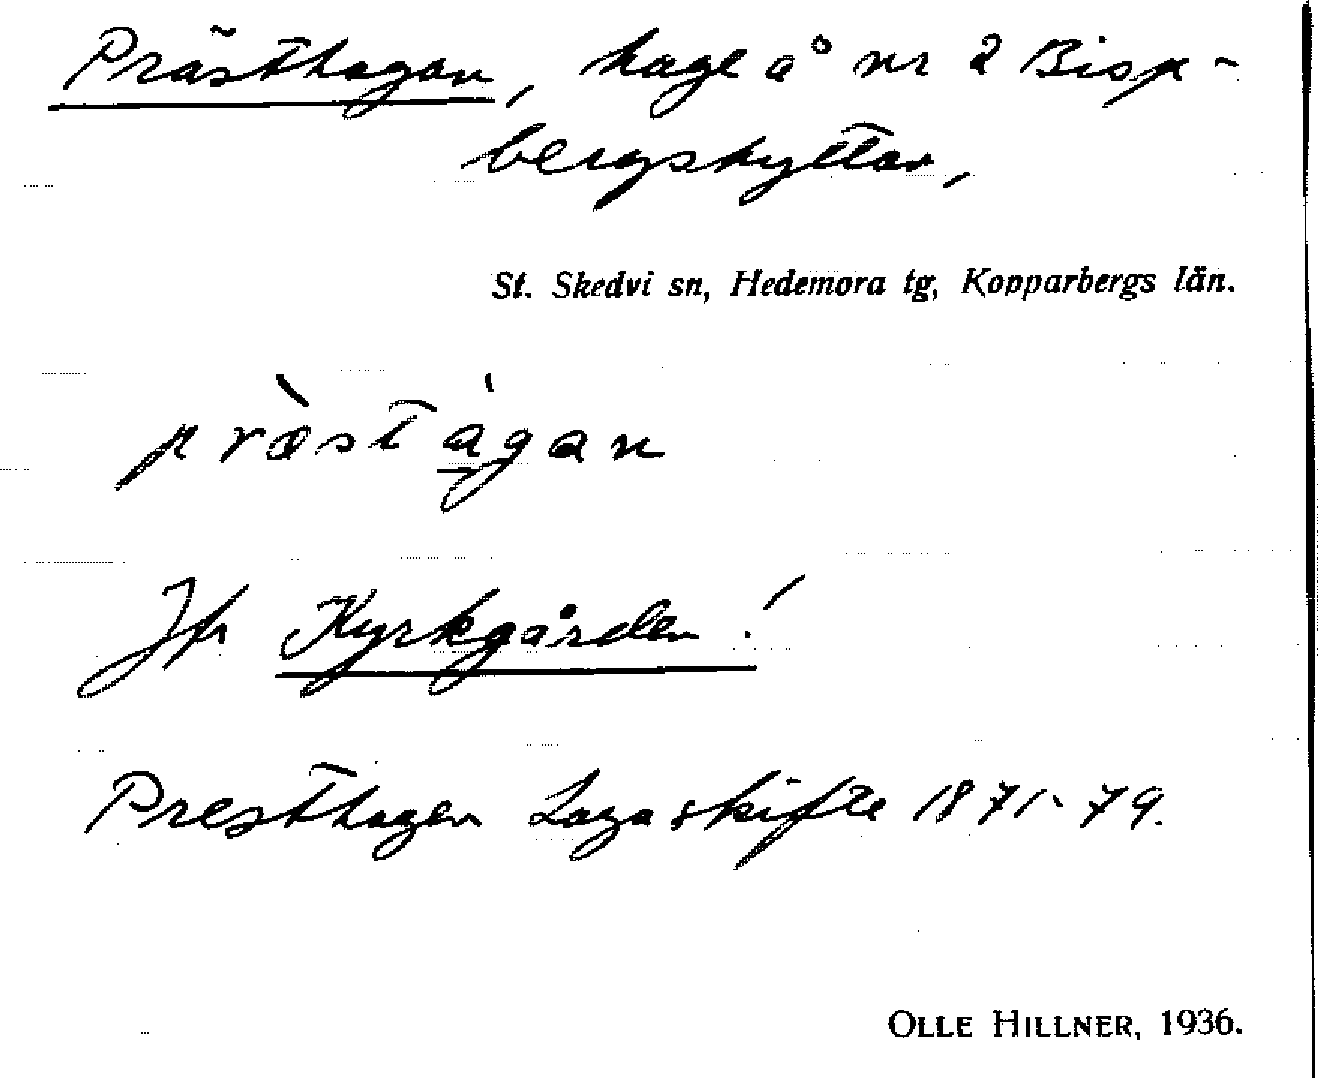 Prästhagan, hage å nr 2 Bisp-
bergshyttan,
St. Skedvi sn, Hedemora tg, Kopparbergs län.
pr&#768;æst&#769;agan
Jfr Kyrkgården!
Presthagen Laga skifte 1871-79.
OLLE HILLNER, 1936.